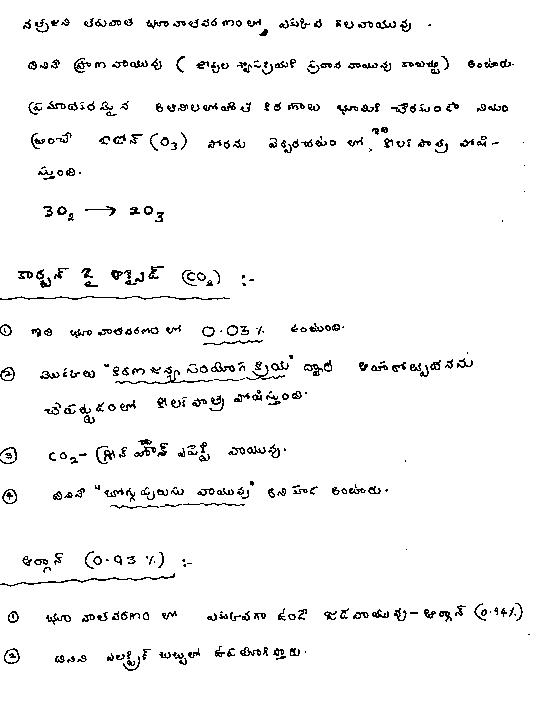 నత్రజని తరువాత భూ వాతావరణం లో, ఎక్కువ గల వాయువు.
దీనిని ప్రాణ వాయువు ( జీవుల శ్వాసక్రియకి ప్రధాన వాయువు కాబట్టి) అంటారు.
ప్రమాదకరమైన అతినీలలోహిత కిరణాలు భూమికి చేరకుండా నియం
త్రించే ఓజోన్ (O3) పొరను ఏర్పరచటం లో, ఇది కీలక పాత్ర పోషి-
స్తుంది.
3O2 → 2O3
కార్బన్ డై ఆక్సైడ్ (CO2) :-
① ఇది భూ వాతావరణం లో 0.03% ఉంటుంది.
② మొక్కలు "కిరణ జన్య సంయోగ క్రియ" ద్వారా ఆహారోత్పదనను
చేయడంలో కీలక పాత్ర పోషిస్తుంది.
③ CO2 - గ్రీన్ హౌస్ ఎఫెక్ట్ వాయువు.
④ దీనినే "బొగ్గు పులుసు వాయువు" అని కూడ అంటారు.
ఆర్గాన్ (0.93%) :-
① భూ వాతావరణం లో ఎక్కువగా ఉండే జడ వాయువు - ఆర్గాన్ (0.94%)
② దీనిని ఎలక్ట్రిక్ బల్బులలో ఉపయోగిస్తారు.